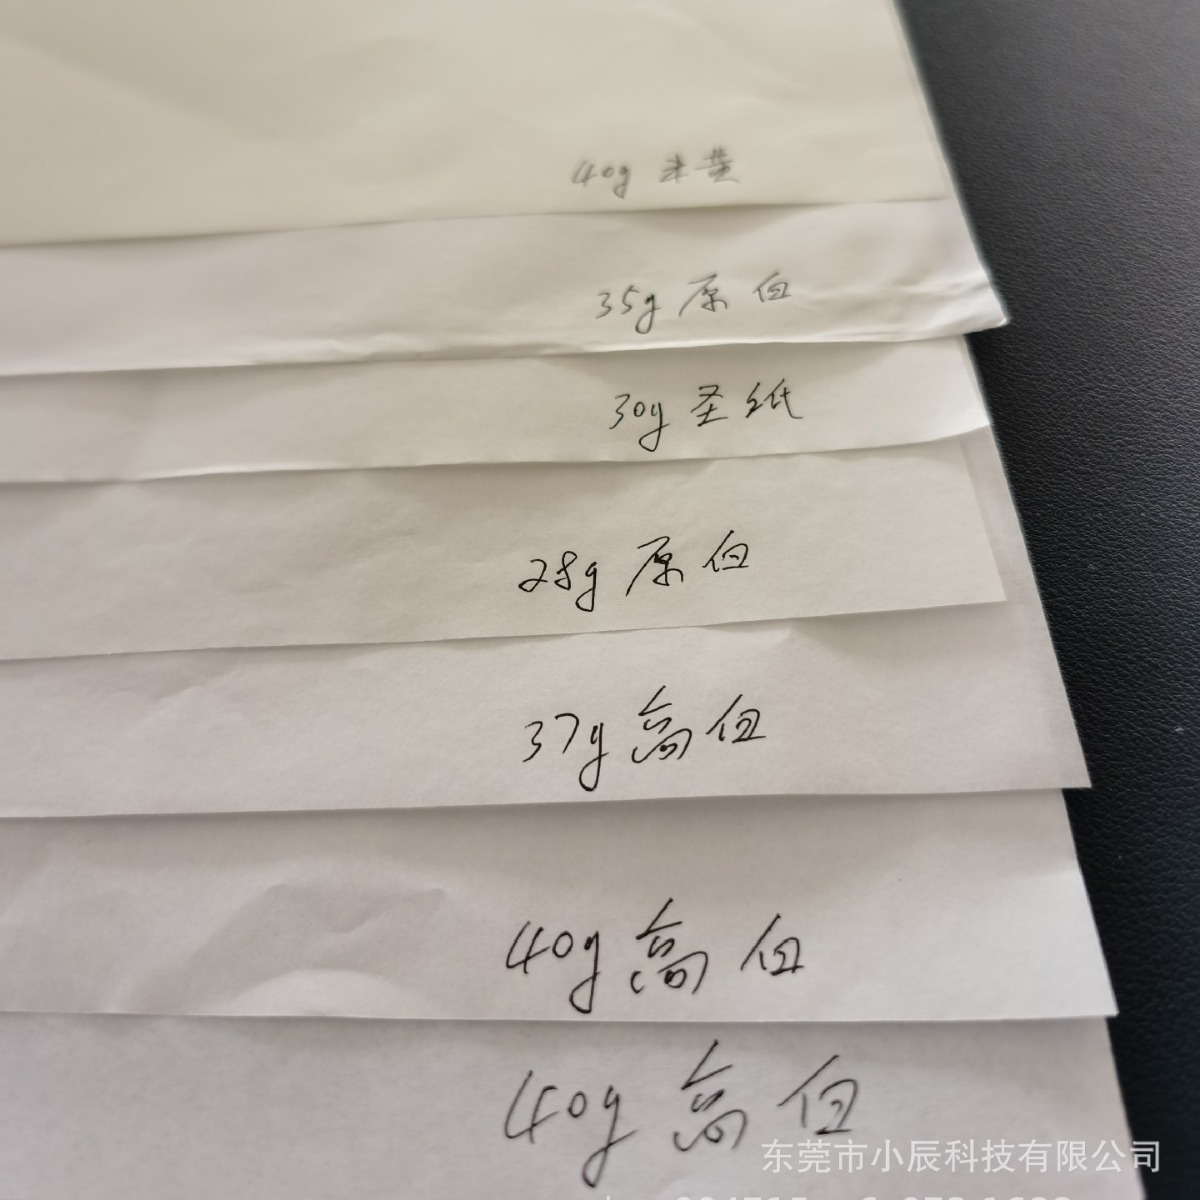 40g 米黄
35g 原白
30g 圣纸
28g 原白
37g 高白
40g 高白
40g 高白
东莞市小辰科技有限公司